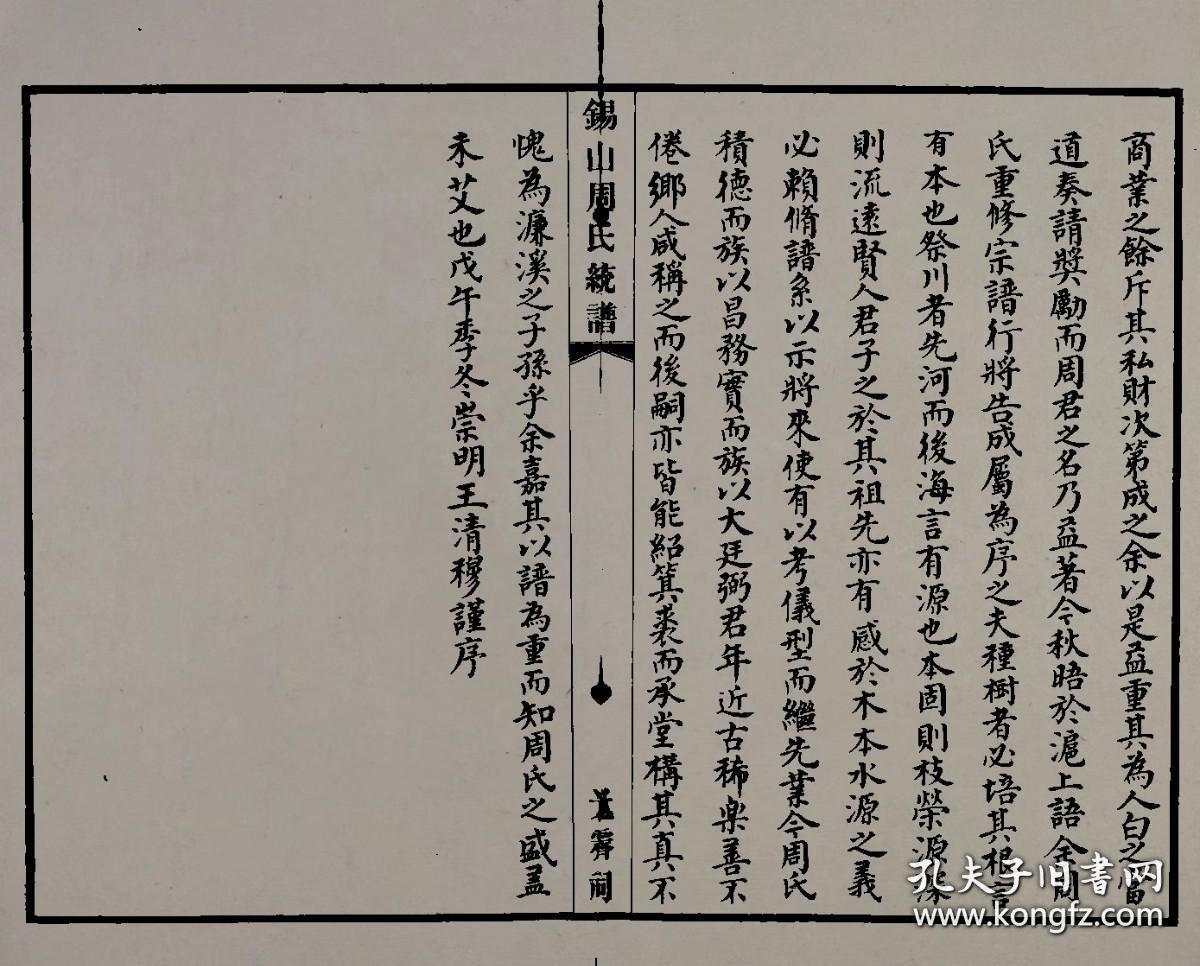 商業之餘斥其私財次第成之余以是益重其為人白之當
道奏請獎勵而周君之名乃益著今秋晤於滬上語余周
氏重修宗譜行將告成屬為序之夫種樹者必培其根言
有本也祭川者先河而後海言有源也本固則枝榮源深
則流遠賢人君子之於其祖先亦有感於木本水源之義
必賴脩譜系以示將來使有以考儀型而繼先業今周氏
積德而族以昌務實而族以大廷弼君年近古稀樂善不
倦鄉人咸稱之而後嗣亦皆能紹箕裘而承堂構其真不
錫山周氏統譜
霽祠
愧為濂溪之子孫乎余嘉其以譜為重而知周氏之盛益
未艾也戊午季冬崇明王清穆謹序
孔夫子旧书网
www.kongfz.com